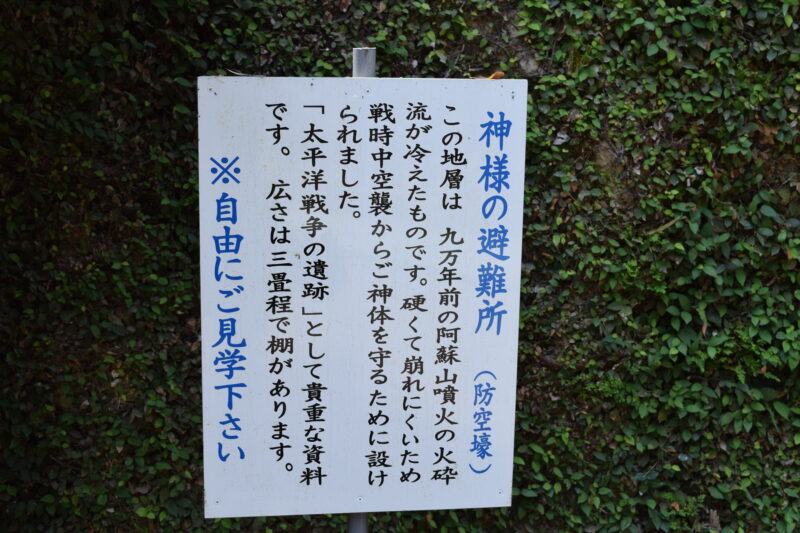 神様の避難所（防空壕）
この地層は　九万年前の阿蘇山噴火の火砕
流が冷えたものです。硬くて崩れにくいため
戦時中空襲からご神体を守るために設け
られました。
「太平洋戦争の遺跡」として貴重な資料
です。　広さは三畳程で棚があります。
※自由にご見学下さい